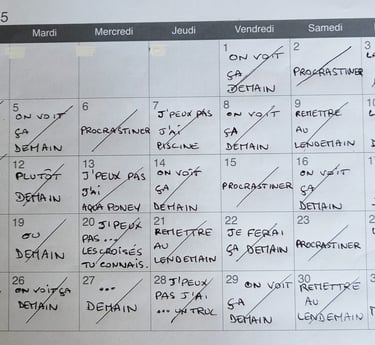 5
Mardi
Mercredi
Jeudi
Vendredi
Samedi
1
ON VOIT
ÇA
DEMAIN
2
PROCRASTINER
3
5
ON VOIT
ÇA
DEMAIN
6
PROCRASTINER
7
J'PEUX PAS
J'ai
PISCINE
8
ON VOIT
ÇA
DEMAIN
9
REMETTRE
AU
LENDEMAIN
10
12
PLUTÔT
DEMAIN
13
J'PEUX PAS
J'ai
AQUA PONEY
14
ON VOIT
ÇA
DEMAIN
15
PROCRASTINER
16
ON VOIT
ÇA
DEMAIN
19
OU
DEMAIN
20 J'PEUX
PAS...
LES CROISÉS
TU CONNAIS.
21
REMETTRE
AU
LENDEMAIN
22
JE FERAI
ÇA DEMAIN
23
PROCRASTINER
26
ON VOIT ÇA
DEMAIN
27
...
DEMAIN
28 J'PEUX
PAS J'AI
... UN TRUC
29
ON VOIT
ÇA
DEMAIN
30
REMETTRE
AU
LENDEMAIN